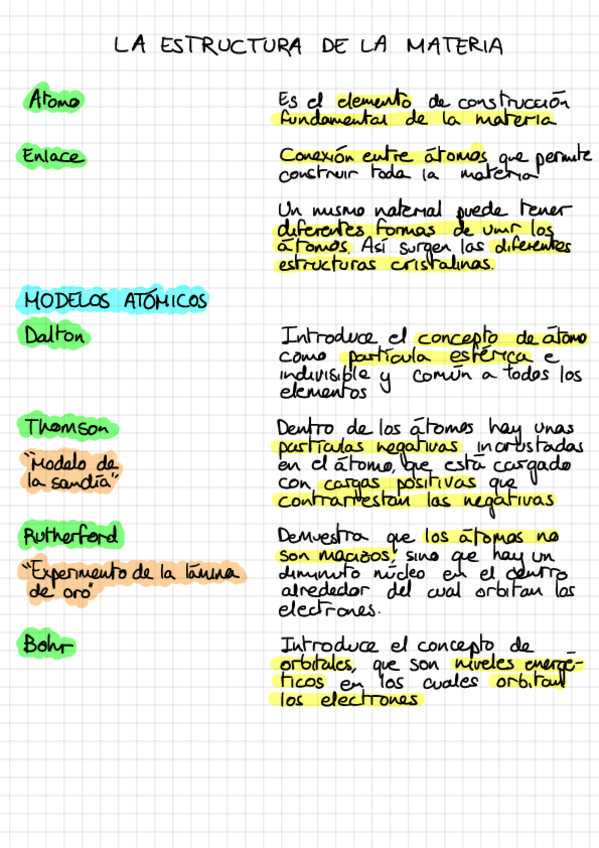 LA ESTRUCTURA DE LA MATERIA
Átomo
Es el elemento de construcción
fundamental de la materia
Enlace
Conexión entre átomos que permite
construir toda la materia
Un mismo material puede tener
diferentes formas de unir los
átomos. Así surgen las diferentes
estructuras cristalinas.
MODELOS ATÓMICOS
Dalton
Introduce el concepto de átomo
como partícula esférica e
indivisible y común a todos los
elementos
Thomson
Dentro de los átomos hay unas
partículas negativas incrustadas
"Modelo de
la sandía"
en el átomo, que está cargado
con cargas positivas que
contrarrestan las negativas
Rutherford
Demuestra que los átomos no
son macizos, sino que hay un
"Experimento de la lámina
de oro"
diminuto núcleo en el centro
alrededor del cual orbitan los
electrones.
Bohr
Introduce el concepto de
orbitales, que son niveles energé-
ticos en los cuales orbitan
los electrones